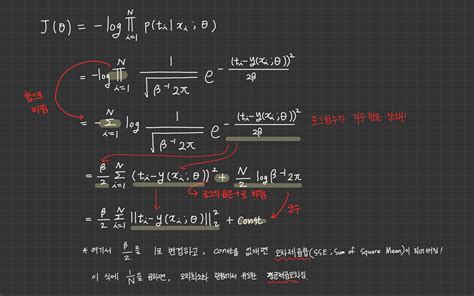 J(θ) = -log ∏_{i=1}^{N} p(t_i | x_i ; θ)
= -log ∏_{i=1}^{N} 1/√(β⁻¹2π) e^{-(t_i-y(x_i;θ))²/2β}
합으로 바뀜
= -∑_{i=1}^{N} log 1/√(β⁻¹2π) e^{-(t_i-y(x_i;θ))²/2β}
로그함수가 지수함를 만나!
= β/2 ∑_{i=1}^{N} (t_i-y(x_i;θ))² + N/2 log β⁻¹2π
로그의 곱은 +로 바뀜
상수
= β/2 ∑_{i=1}^{N} ||t_i-y(x_i;θ)||₂² + const
* 여기서 β/2 를 1로 변경하고, const를 없애면 오차제곱합(SSE; Sum of Square Mean)이 되어버림!
이 식에 1/N을 곱하면, 관점에서 유도한 평균제곱오차임.